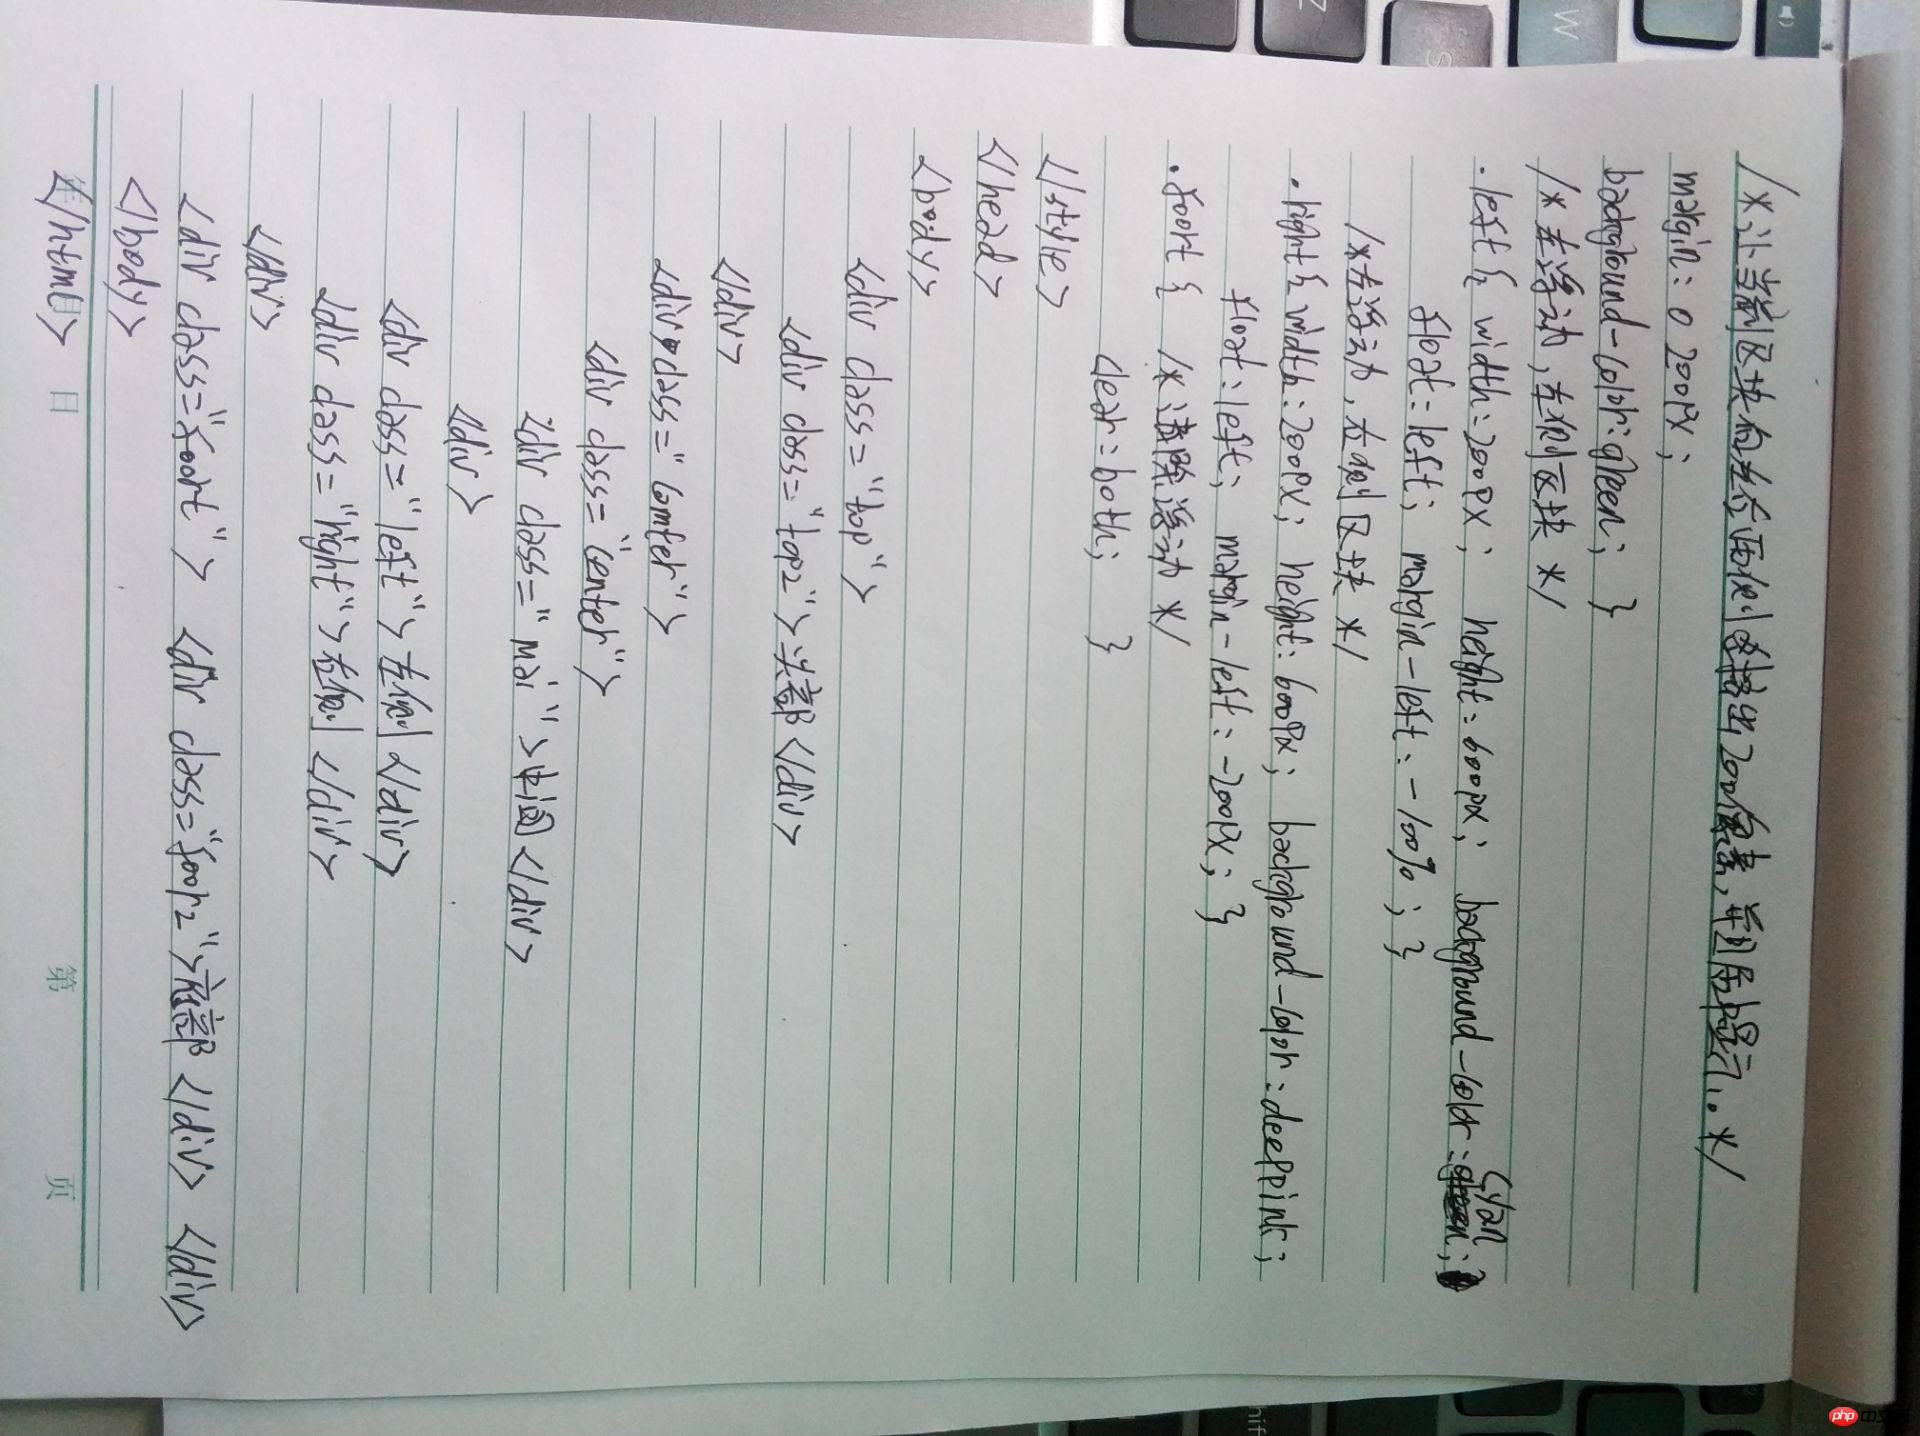 /*让当前区块向左右两侧挤出200像素,并居中显示。*/
margin: 0 200px;
background-color: green; }
/*左浮动,左侧区块*/
.left{ width:200px; height:600px; background-color: cyan
float:left; margin-left:-100%; }
/*右浮动,右侧区块*/
.right{ width:200px; height:600px; background-color:deeppink;
float:left; margin-left:-200px; }
.foort{ /*清除浮动*/
clear:both; }
</style>
</head>
<body>
<div class="top">
<div class="top2">头部</div>
</div>
<div class="comter">
<div class="center">
<div class="mai">中间</div>
</div>
<div class="left">左侧</div>
<div class="right">右侧</div>
</div>
<div class="foort"> <div class="foor2">底部</div> </div>
</body>
</html>
日 第 页
php